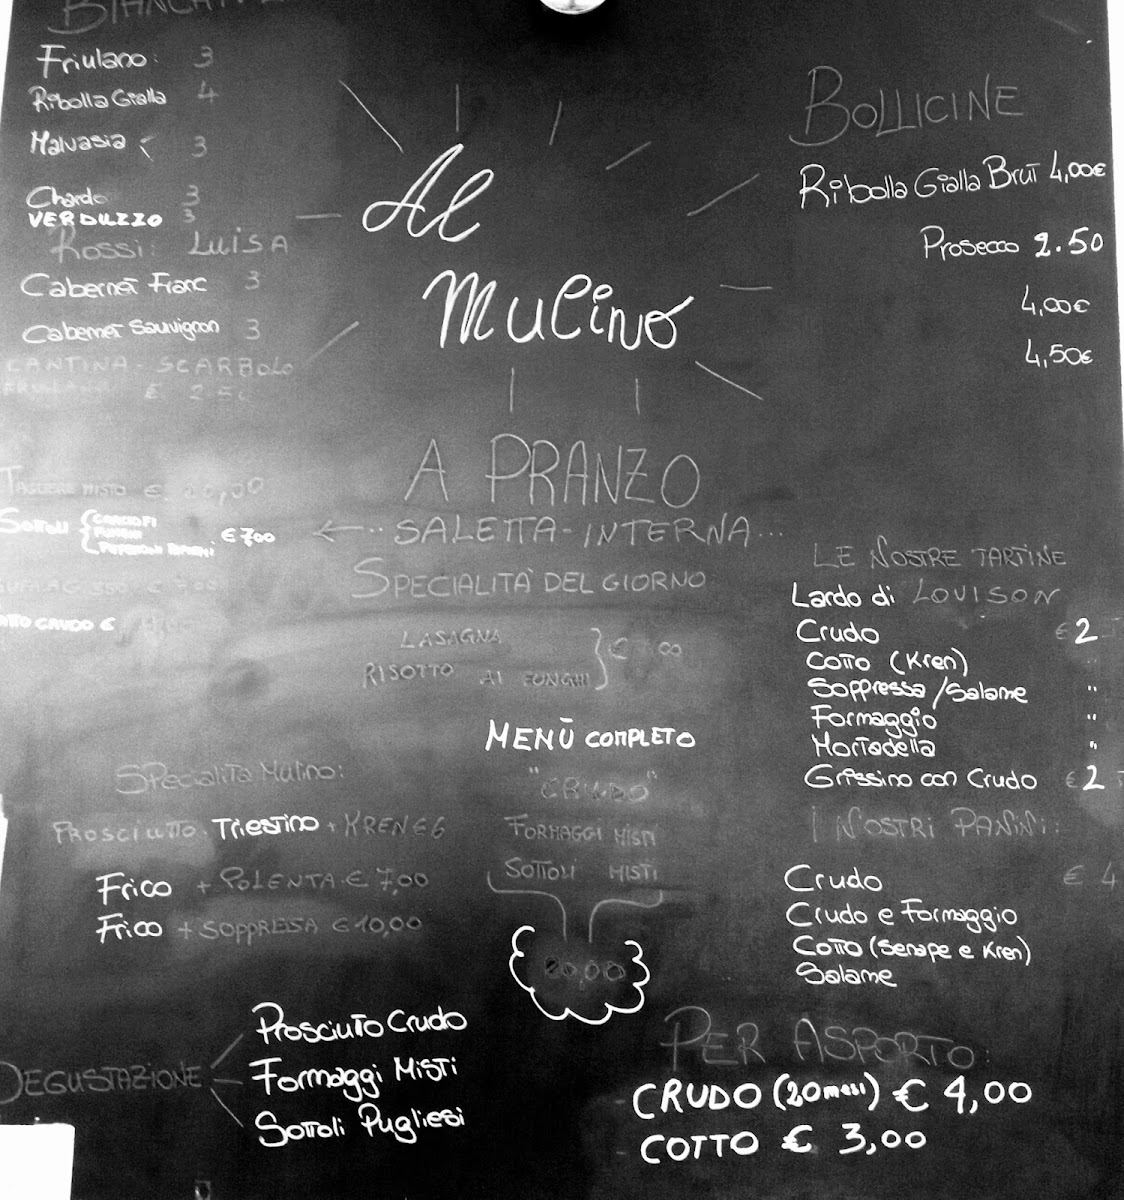 Friulano: 3
Ribolla Gialla 4
Malvasia 3
Chardo 3
VERDUZZO 3
ROSSI: LUISA
Cabernet Franc 3
Cabernet Sauvignon 3
CANTINA - SCARBOLO
FRIULANO € 2.50
TAGLIERE MISTO € 20,00
SOTTOLI { CARCIOFI
€ 7,00
CRUDO €
Al
Mulino
A PRANZO
←... SALETTA-INTERNA...
SPECIALITÀ DEL GIORNO
LASAGNA
RISOTTO AI FUNGHI
MENÙ COMPLETO
"CRUDO"
FORMAGGI MISTI
SOTTOLI MISTI
20,00
BOLLICINE
Ribolla Gialla Brut 4,00€
Prosecco 2.50
4,00€
4,50€
LE NOSTRE TARTINE
Lardo di LOVISON
Crudo € 2
Cotto (Kren) "
Soppressa/Salame "
Formaggio "
Mortadella "
Grissino con Crudo € 2
I NOSTRI PANINI:
Crudo € 4
Crudo e Formaggio
Cotto (Senape e Kren)
Salame
Specialità Mulino:
PROSCIUTTO. Triestino + KREN € 6
Frico + POLENTA € 7,00
Frico + SOPPRESA € 10,00
DEGUSTAZIONE
Prosciuto Crudo
Formaggi Misti
Sottoli Pugliesi
PER ASPORTO:
- CRUDO (20 mesi) € 4,00
- COTTO € 3,00